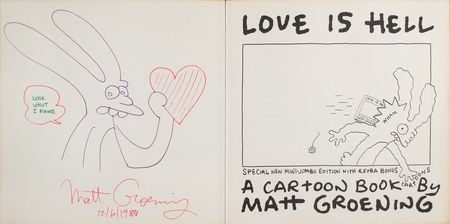 LOOK
WHAT
I FOUND.
Matt Groening
12/6/1989
LOVE IS HELL
WHAM
SPECIAL NEW MINI-JUMBO EDITION WITH EXTRA BONUS
CARTOONS
A CARTOON BOOK By
MATT GROENING